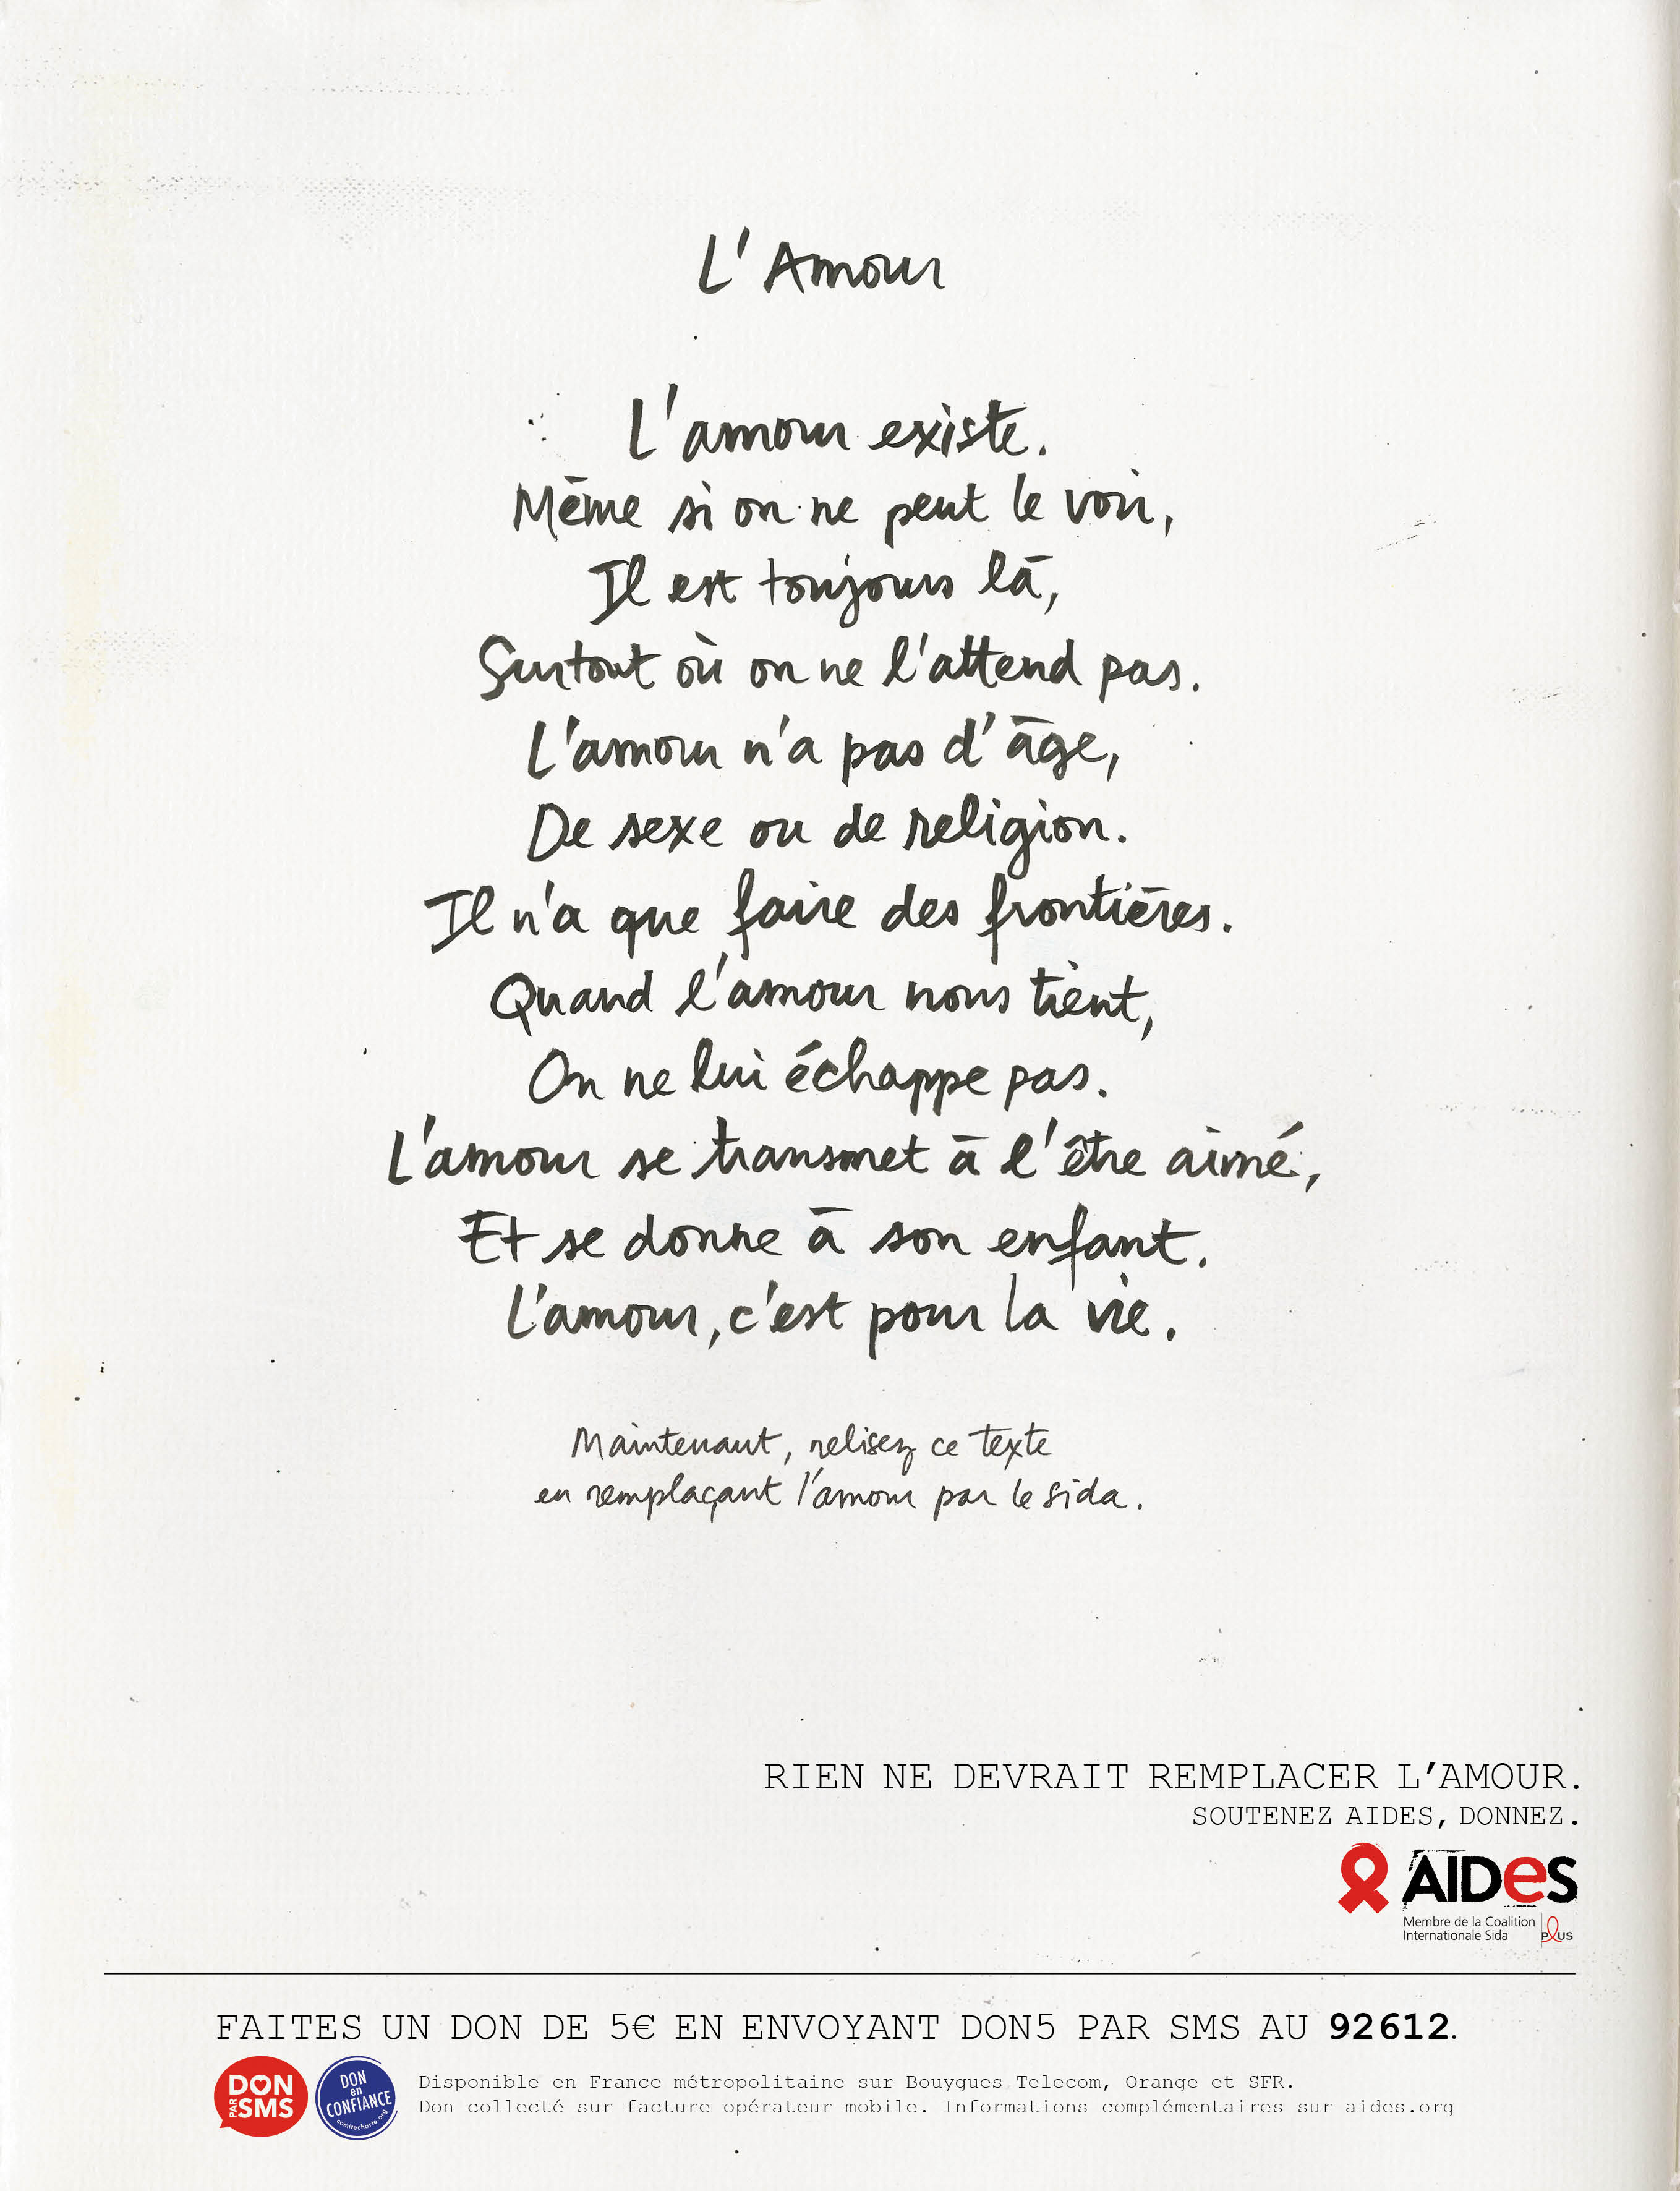 L'Amour
L'amour existe.
Même si on ne peut le voir,
Il est toujours là,
Surtout où on ne l'attend pas.
L'amour n'a pas d'âge,
De sexe ou de religion.
Il n'a que faire des frontières.
Quand l'amour nous tient,
On ne lui échappe pas.
L'amour se transmet à l'être aimé,
Et se donne à son enfant.
L'amour, c'est pour la vie.
Maintenant, relisez ce texte
en remplaçant l'amour par le sida.
RIEN NE DEVRAIT REMPLACER L'AMOUR.
SOUTENEZ AIDES, DONNEZ.
AIDeS
Membre de la Coalition
Internationale Sida
PLUS
FAITES UN DON DE 5€ EN ENVOYANT DON5 PAR SMS AU 92612.
DON
PAR SMS
DON
en
CONFIANCE
comitecharte.org
Disponible en France métropolitaine sur Bouygues Telecom, Orange et SFR.
Don collecté sur facture opérateur mobile. Informations complémentaires sur aides.org